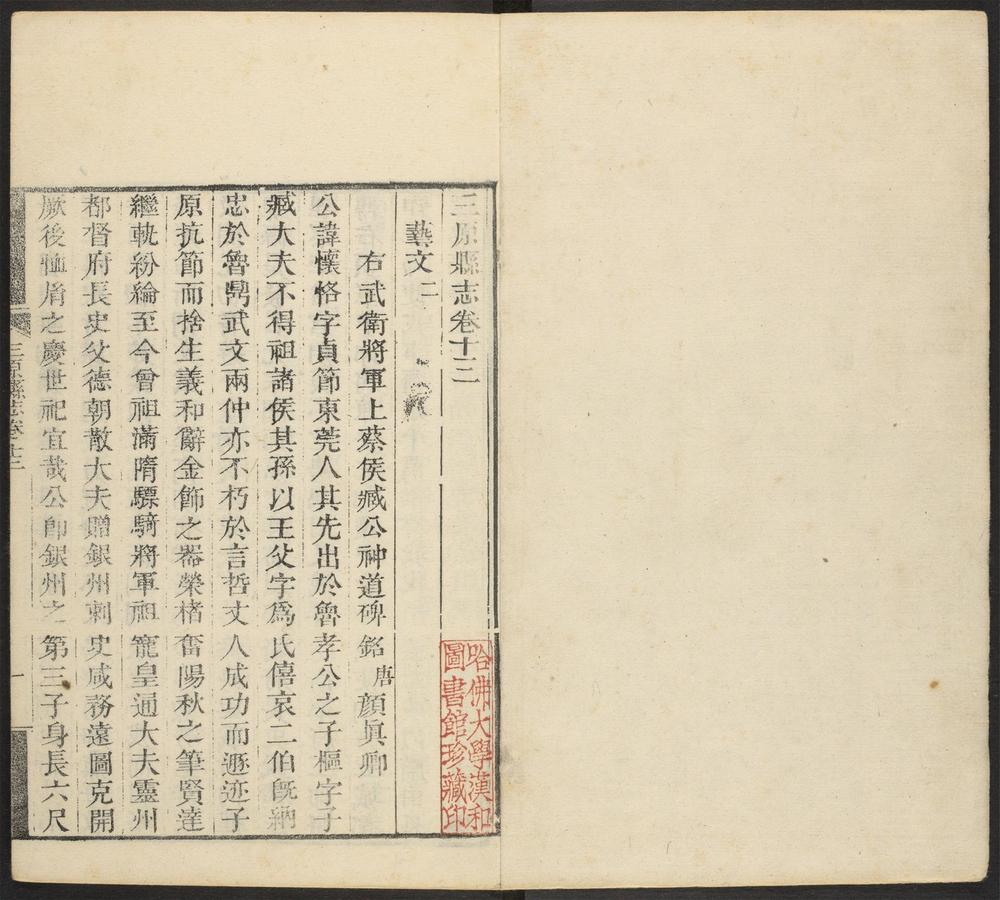 三原縣志卷十三
哈佛大學漢和
圖書館珍藏印
藝文二
右武衛將軍上蔡侯臧公神道碑銘 唐 顏眞卿
公諱懷恪字貞節東莞人其先出於魯孝公之子樞字子
臧大夫不得祖諸侯其孫以王父字爲氏僖哀二伯旣納
忠於魯鼎武文兩仲亦不朽於言哲丈人成功而遯迹子
原抗節而捨生義和辭金飾之器榮楮奮陽秋之筆賢達
繼軌紛綸至今曾祖滿隋驃騎將軍祖寵皇通大夫靈州
都督府長史父德朝散大夫贈銀州刺史咸務遠圖克開
厥後恤㞕之慶世祀宜哉公卽銀州之第三子身長六尺
三原縣志卷十三
一